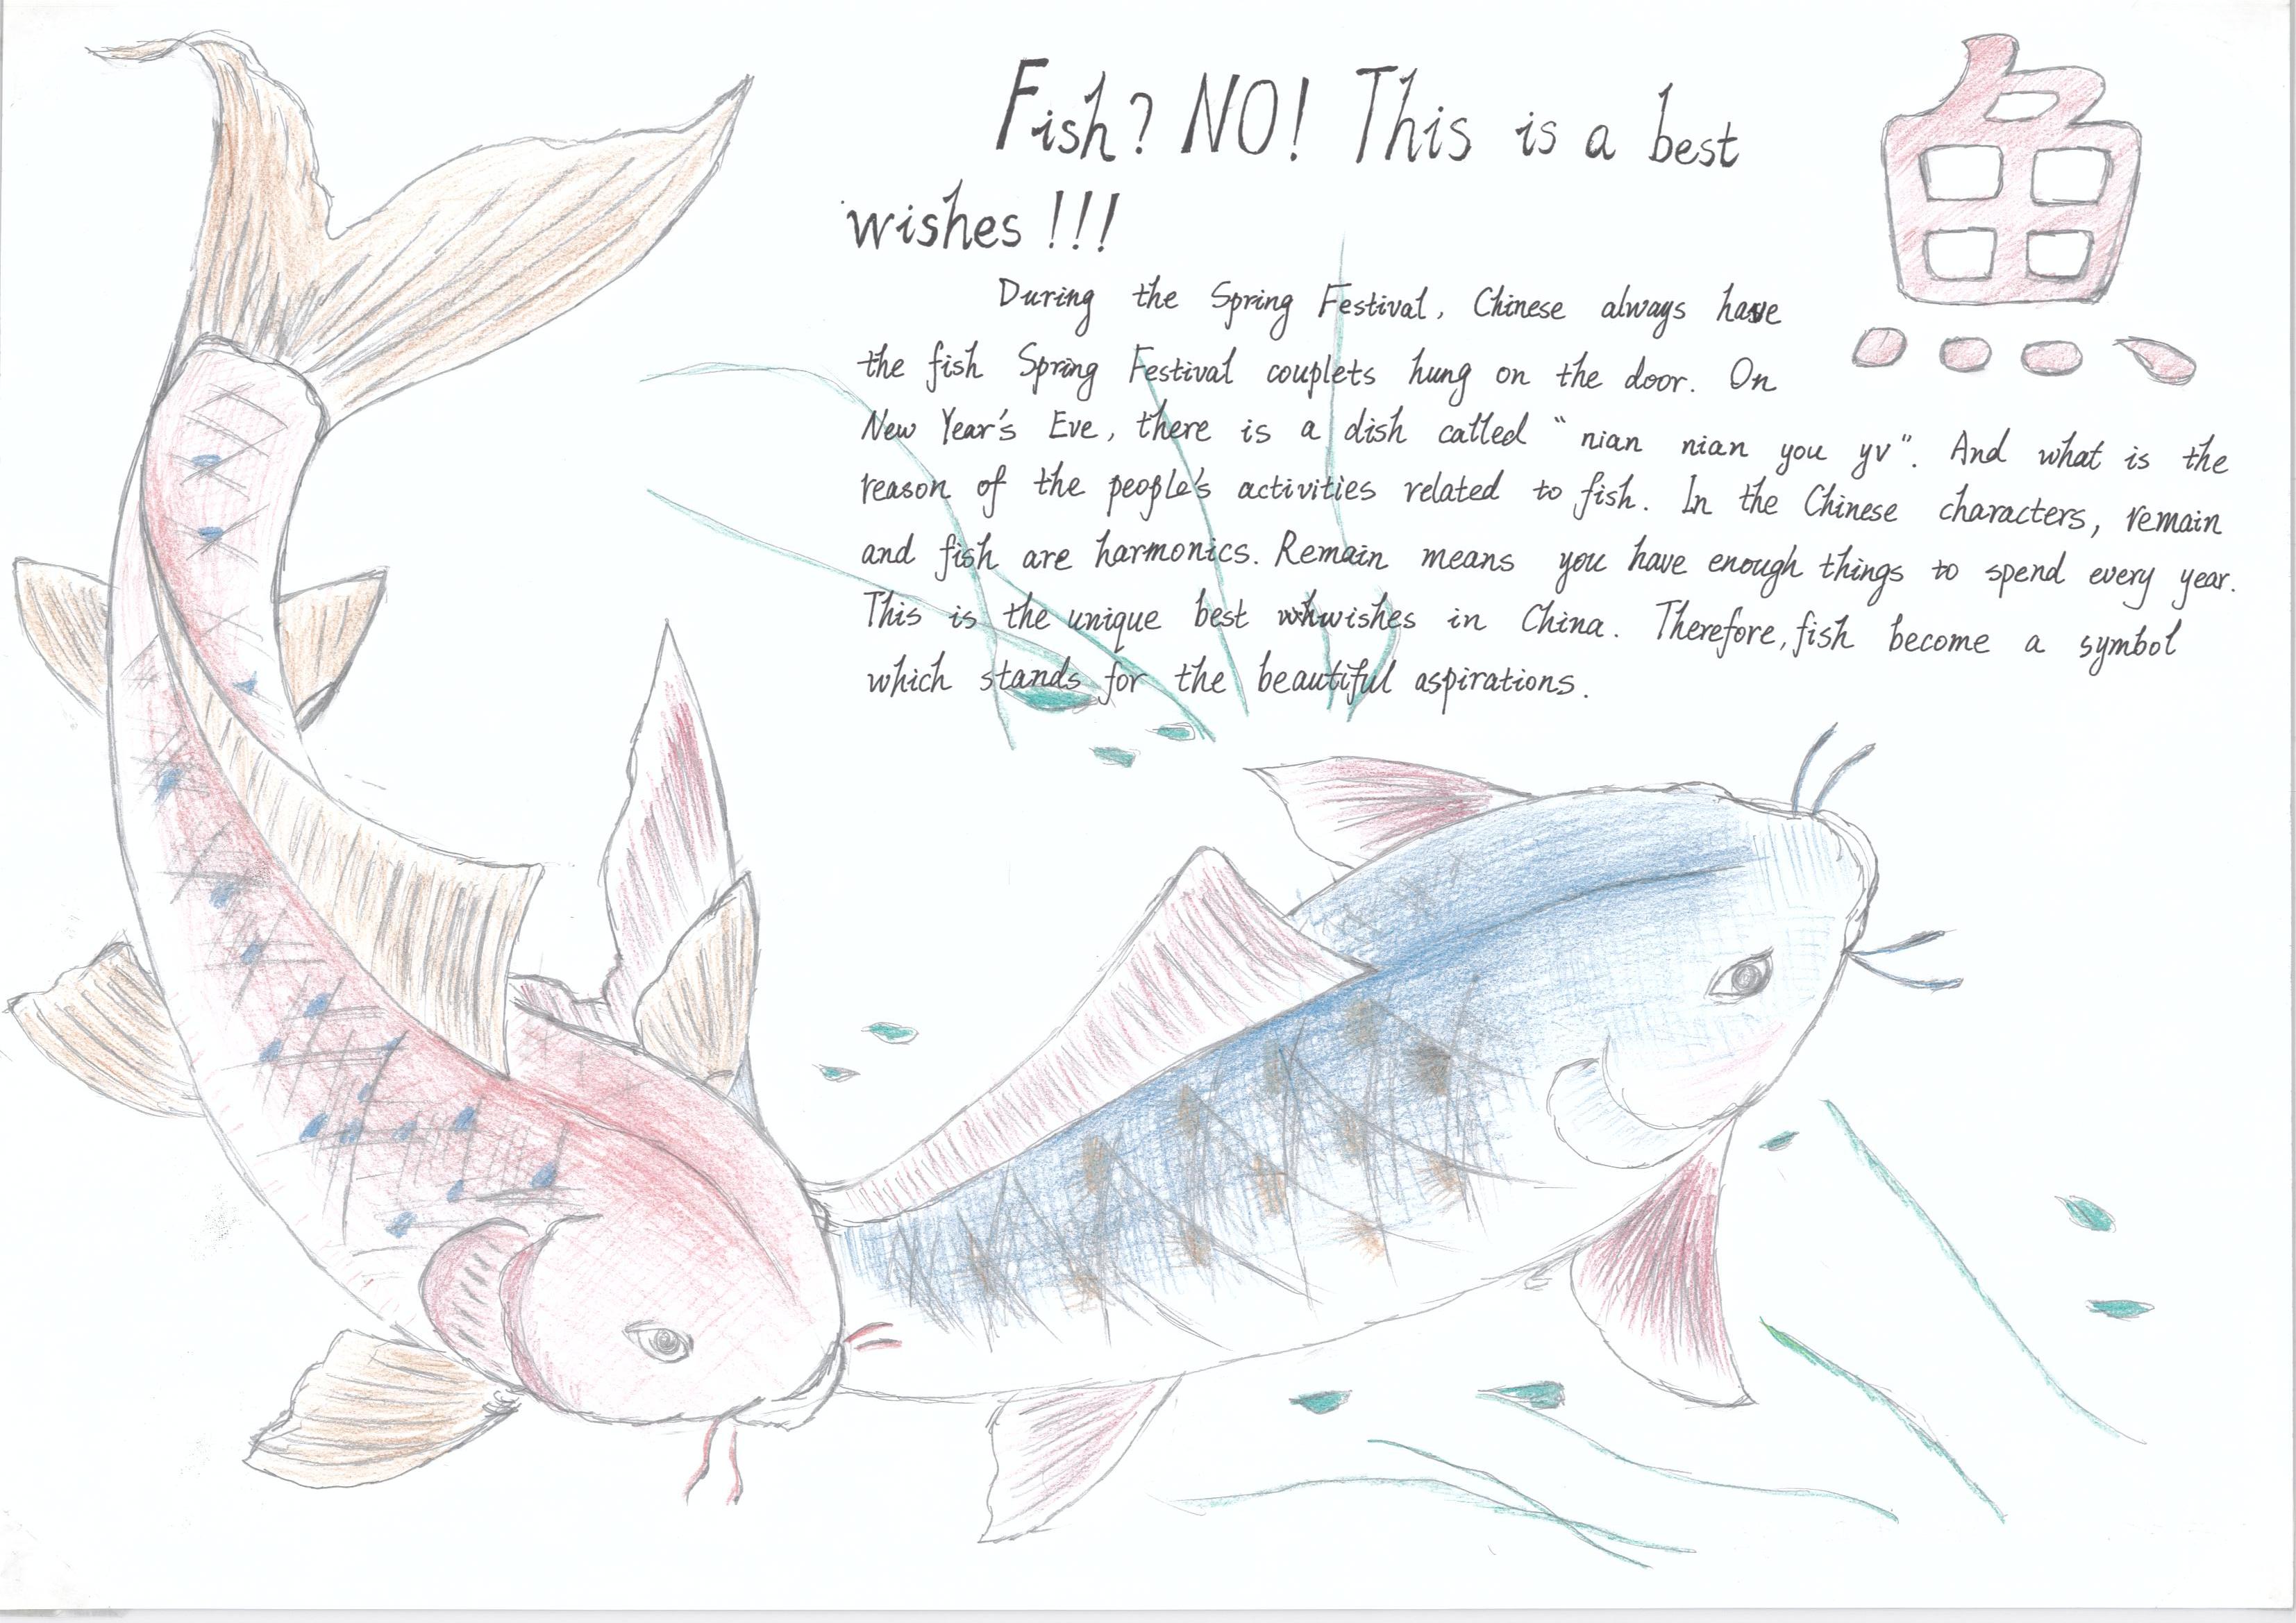 Fish? NO! This is a best
wishes!!!
鱼
During the Spring Festival, Chinese always have
the fish Spring Festival couplets hung on the door. On
New Year's Eve, there is a dish called "nian nian you yv". And what is the
reason of the people's activities related to fish. In the Chinese characters, remain
and fish are harmonics. Remain means you have enough things to spend every year.
This is the unique best whwishes in China. Therefore, fish become a symbol
which stands for the beautiful aspirations.